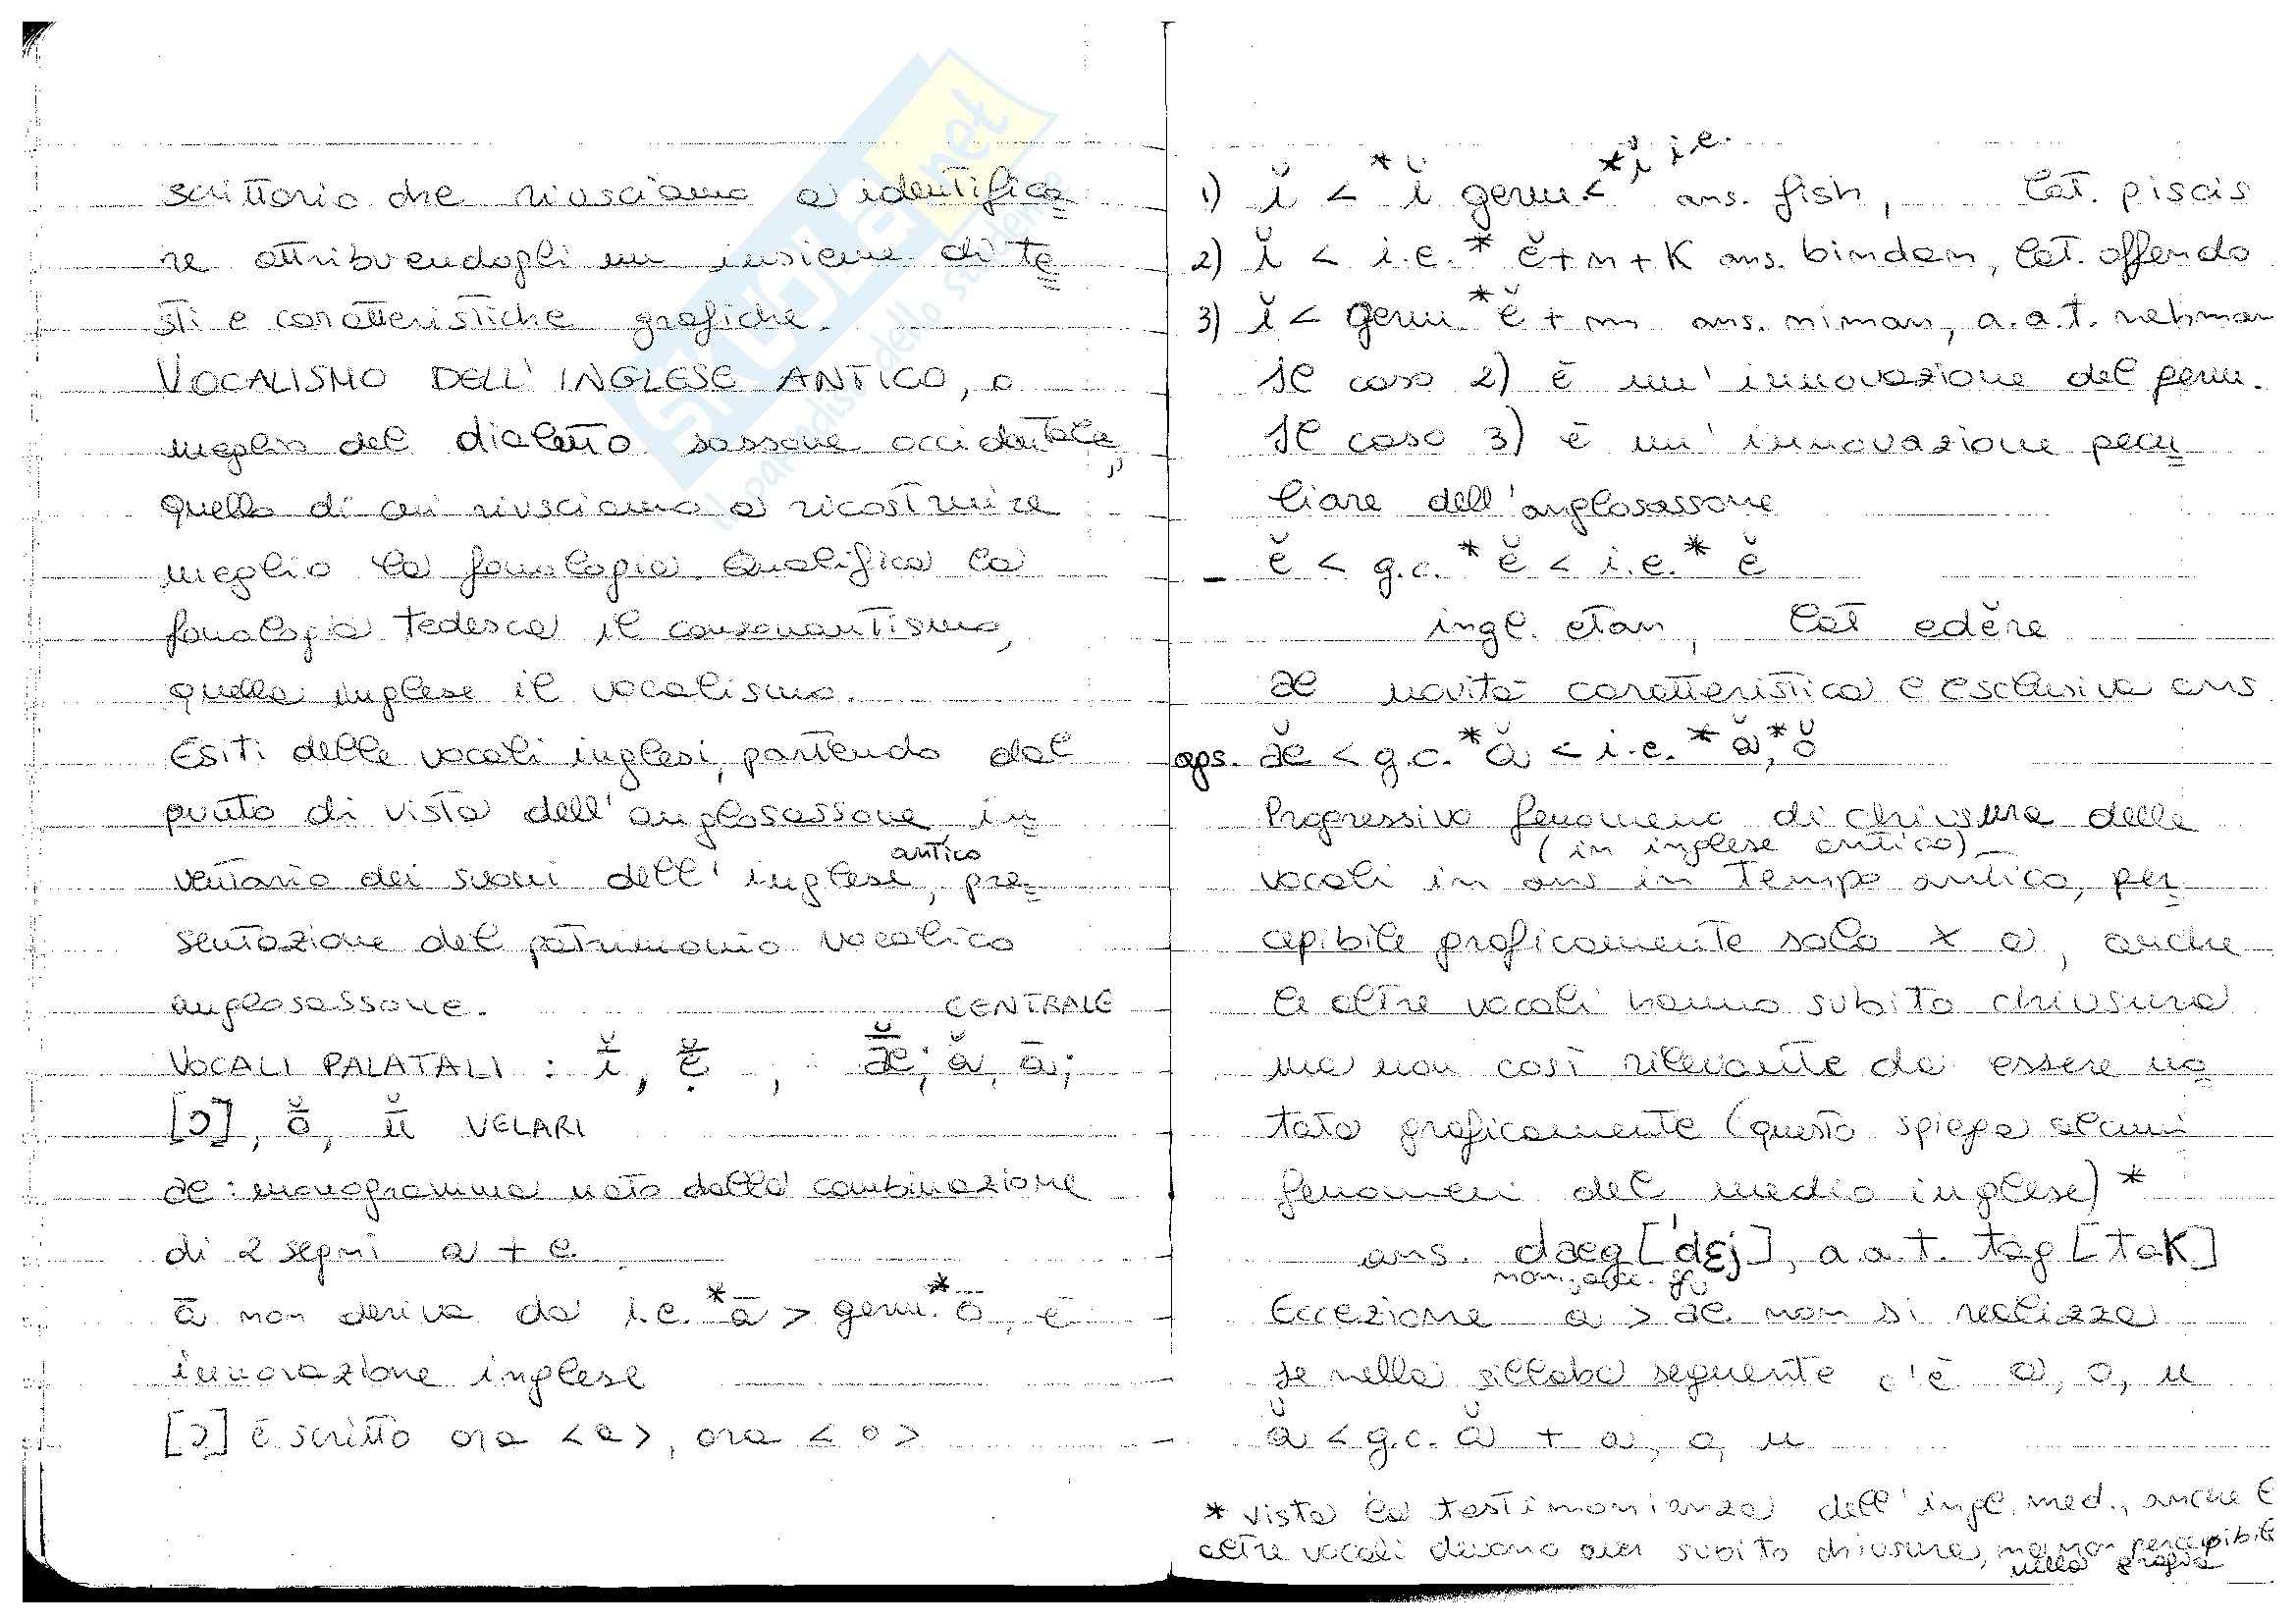 scrittorio che riusciamo a identifica=
re attribuendogli un insieme di te=
sti e caratteristiche grafiche.
VOCALISMO DELL'INGLESE ANTICO, o
meglio del dialetto sassone occidentale,
quello di cui riusciamo a ricostruire
meglio la fonologia. Qualifica la
fonologia tedesca il consonantismo,
quella inglese il vocalismo.
Esiti delle vocali inglesi, partendo dal
punto di vista dell'anglosassone, in=
ventario dei suoni dell'inglese antico, pre=
sentazione del patrimonio vocalico
anglosassone.
CENTRALE
VOCALI PALATALI : ī̆, ē̆, ǣ̆; ă, ā;
[ɔ], ō̆, ū̆ VELARI
æ: monogramma nato dalla combinazione
di 2 segni a + e
ā non deriva da i.e. *ā > germ. *ō, è
innovazione inglese
[ɔ] è scritto ora <a>, ora <o>
1) ĭ < *ĭ germ. < *ĭ i.e. ans. fish, lat. piscis
2) ĭ < i.e. * ĕ+n+K ans. bindan, lat. offendo
3) ĭ < germ. *ĕ + m ans. niman, a.a.t. nehman
Il caso 2) è un'innovazione del germ.
Il caso 3) è un'innovazione pecu=
liare dell'anglosassone
- ĕ < g.c. *ĕ < i.e. * ĕ
ingl. etan, lat edĕre
æ novità caratteristica e esclusiva ans
ags. æ̆ < g.c. *ă < i.e. *ă, *ŏ
Progressivo fenomeno di chiusura delle
(in inglese antico)
vocali in ans in tempo antico, per=
cepibile graficamente solo x a, anche
le altre vocali hanno subito chiusura
ma non così rilevante da essere no=
tata graficamente (questo spiega alcuni
fenomeni del medio inglese) *
ans. dæg ['dɛj], a.a.t. tag [taK]
nom., acc. sg
Eccezione a > æ non si realizza
se nella sillaba seguente c'è a, o, u
ă < g.c. ă + a, o, u
* vista la testimonianza dell'ingl. med., anche l
altre vocali devono aver subito chiusura, ma non percepibil
nella grafia
SKUOLA.net
il paradiso dello studente